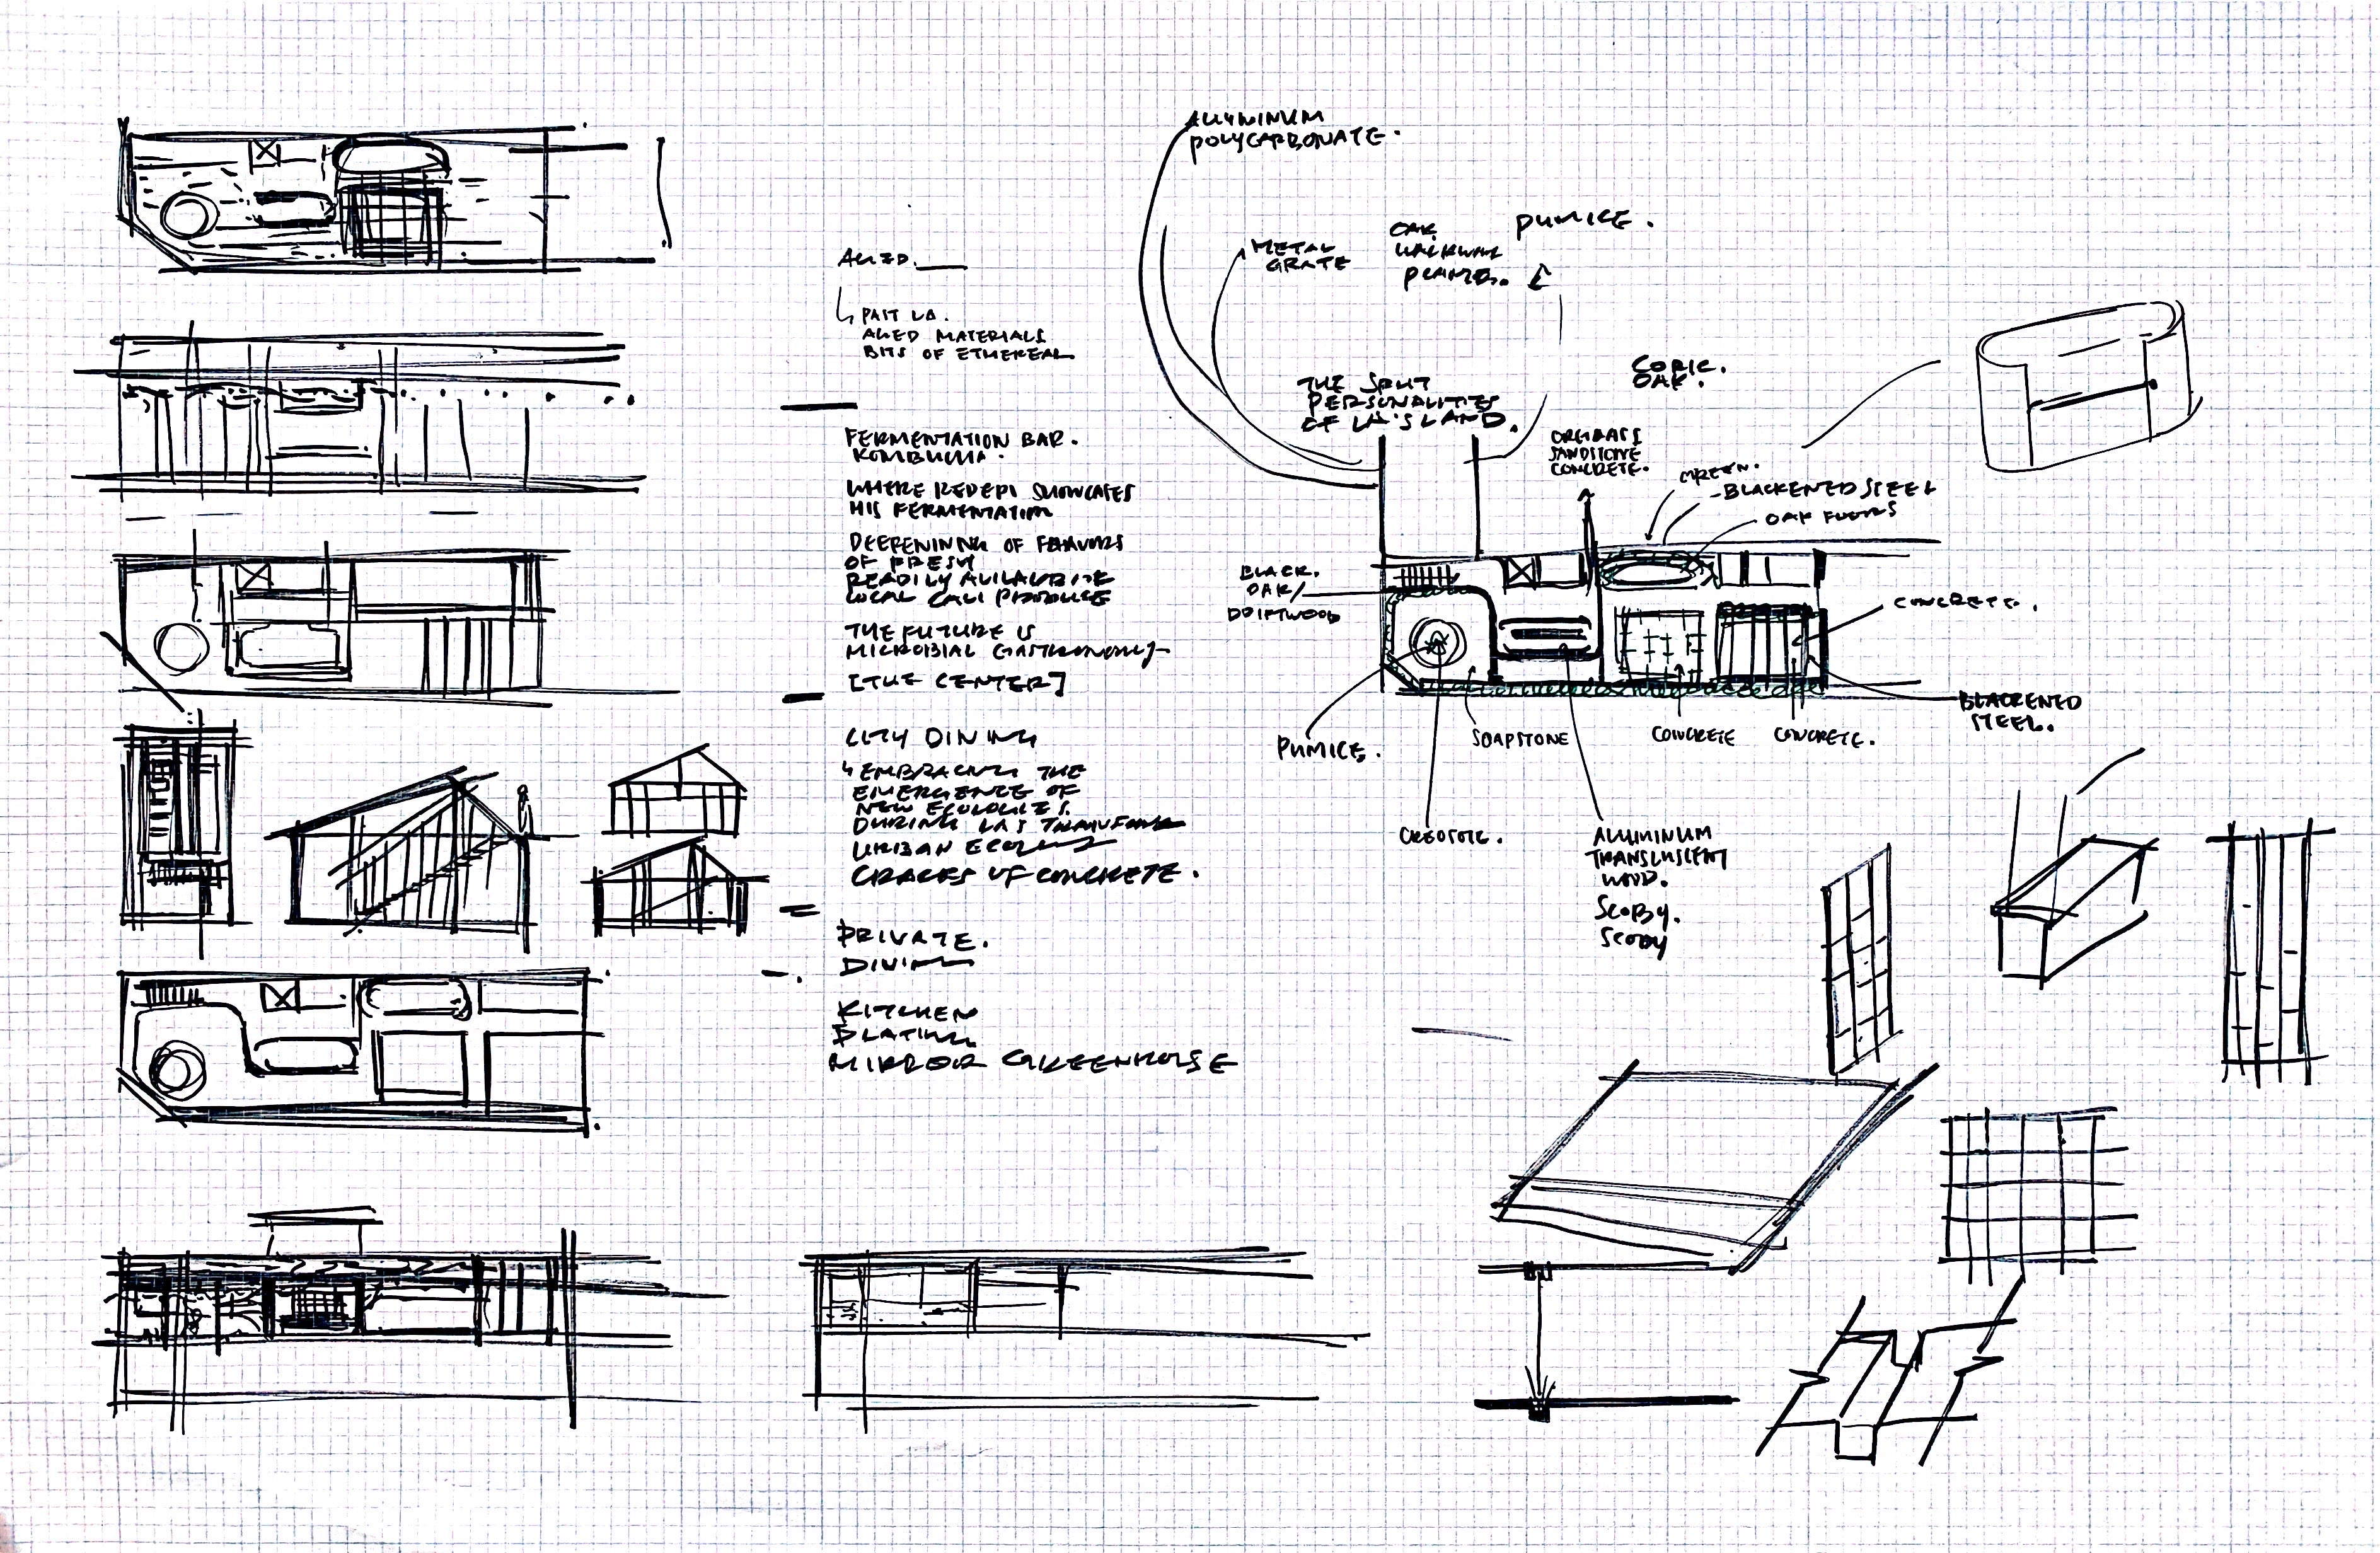 ALUMINUM
POLYCARBONATE.
METAL
GRATE
OAK
WALKWAY
PUMICE.
AGED.
↳ PAST LA.
AGED MATERIALS
BITS OF ETHEREAL
THE SPLIT
PERSONALITIES
OF LA'S LAND.
OAK.
SANDSTONE
CONCRETE.
GREEN.
-BLACKENED STEEL
OAK
BLACK.
OAK/
DRIFTWOOD
CONCRETE.
BLACKENED
STEEL.
PUMICE.
SOAPSTONE
CONCRETE
CONCRETE.
CREOSOTE.
ALUMINUM
TRANSLUSCENT
WOOD.
SCOBY.
SCOBY
FERMENTATION BAR.
KOMBUCHA.
WHERE REDEPI SHOWCASES
HIS FERMENTATION
DEEPENING OF
OF FRESH
READILY
LOCAL CALI PRODUCE
THE FUTURE IS
MICROBIAL GASTRONOMY
[THE CENTER]
CITY DINING
↳ EMBRACING THE
EMERGENCE OF
NEW ECOLOGIES.
DURING LA'S
URBAN
CRACKS OF CONCRETE.
PRIVATE.
DINING
KITCHEN
PLATING
MIRROR GREENHOUSE